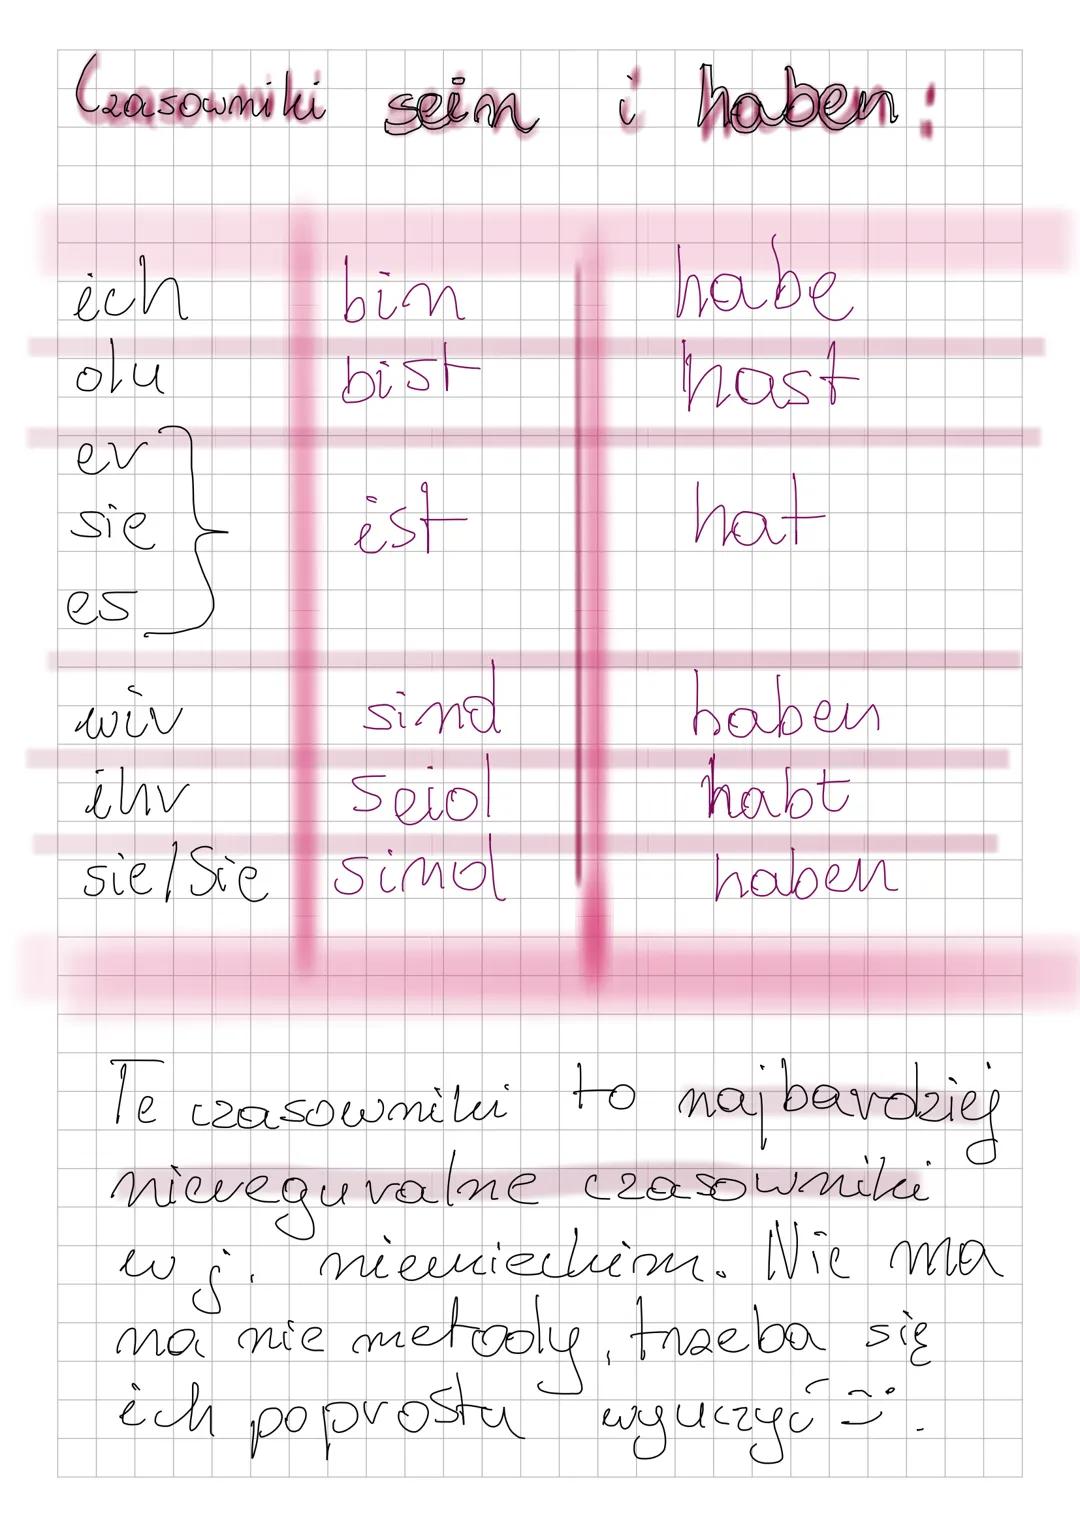 Czasowniki sein i haben:
ich bin habe
du bist hast
er
sie ist hat
es
wir sind haben
ihr seid habt
sie/Sie sind haben
Te czasowniki to najbardziej
nieregularne czasowniki
w j. niemieckim. Nie ma
na nie metody, trzeba się
ich poprostu wyuczyć :).